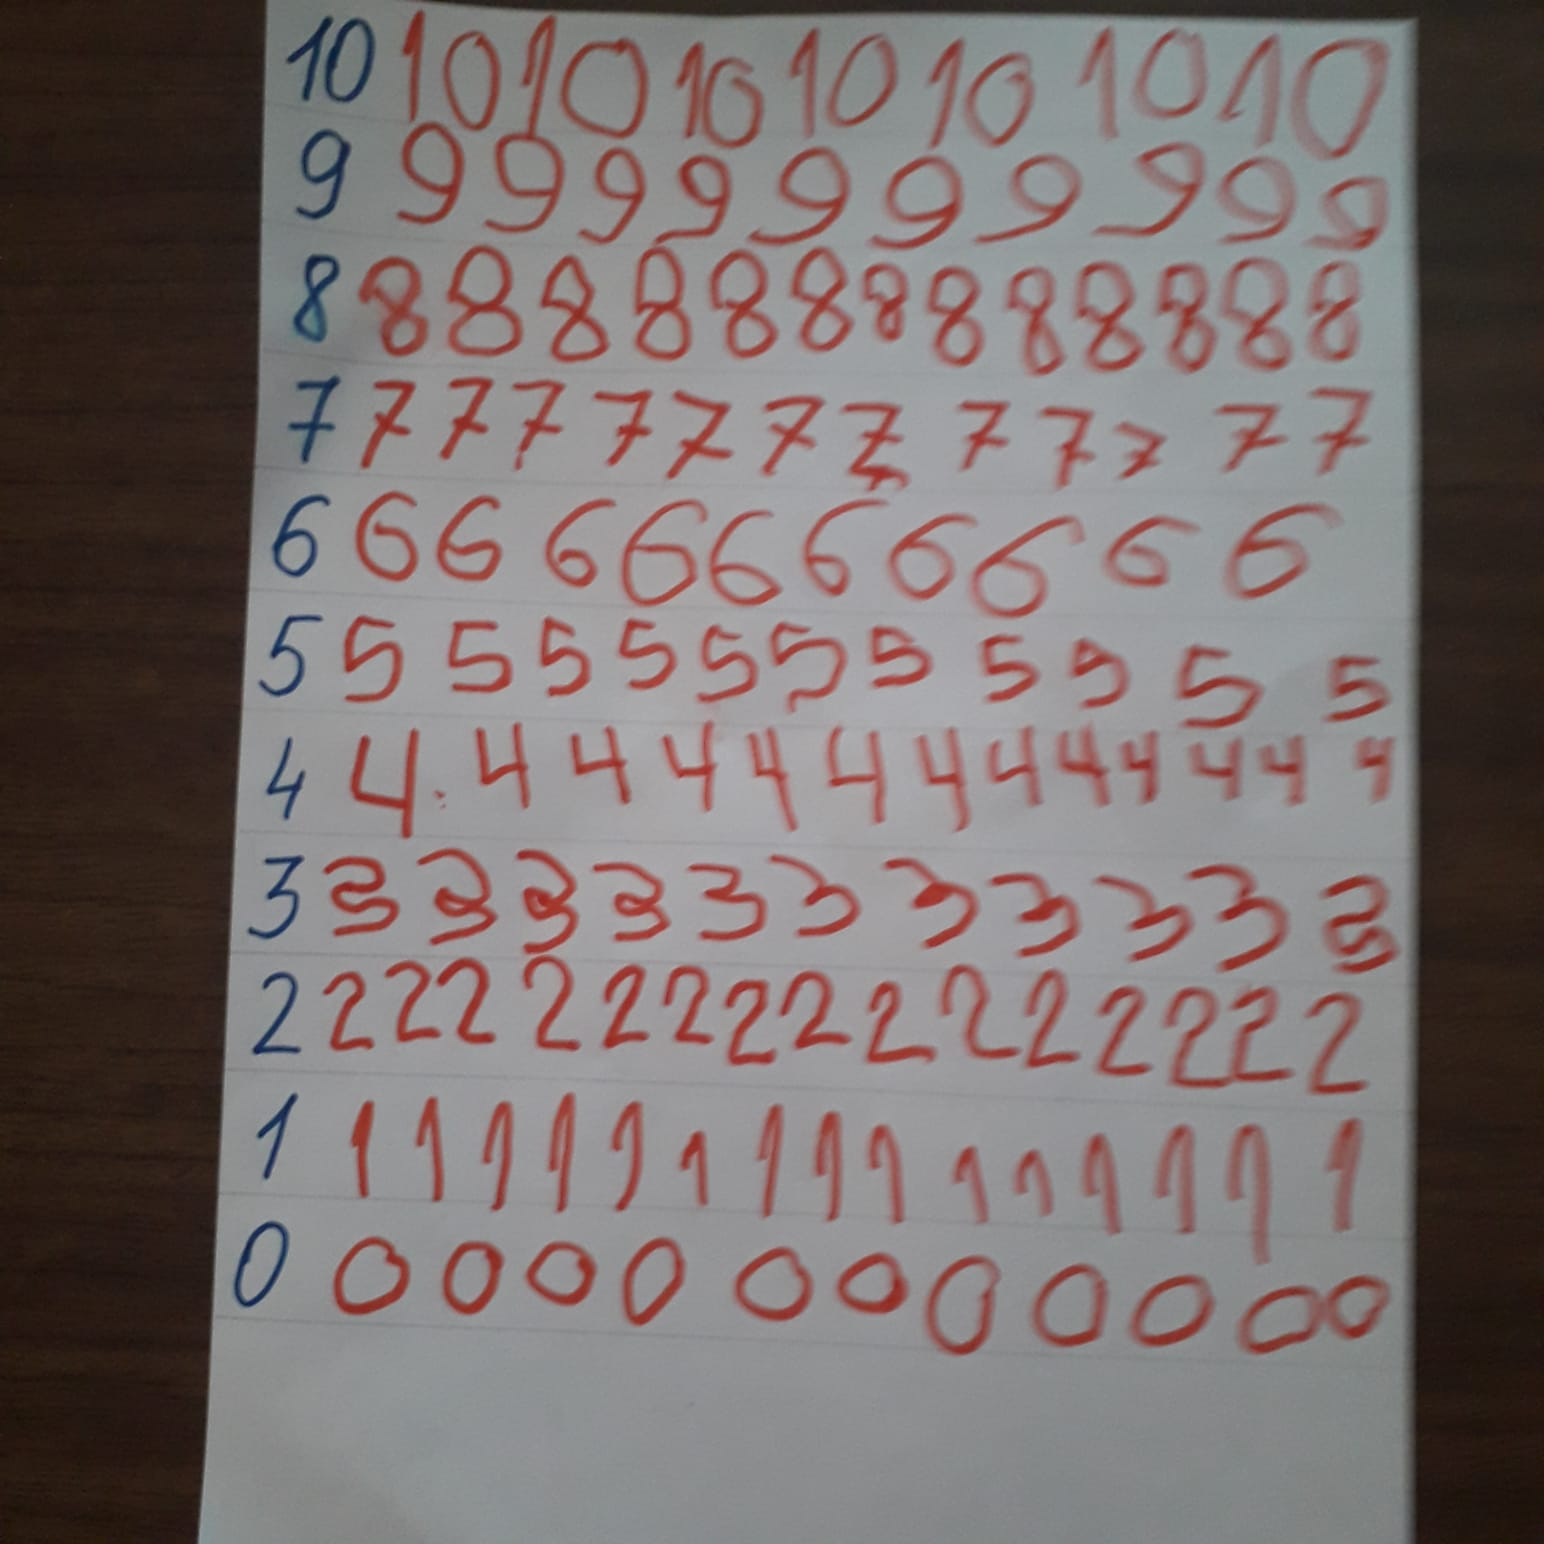 10 10 10 10 10 10 10 10
9 9 9 9 9 9 9 9 9 9 9
8 8 8 8 8 8 8 8 8 8 8 8 8 8
7 7 7 7 7 7 7 7 7 7 7 7 7
6 6 6 6 6 6 6 6 6 6 6
5 5 5 5 5 5 5 5 5 5 5 5
4 4 4 4 4 4 4 4 4 4 4 4 4 4
3 3 3 3 3 3 3 3 3 3 3 3
2 2 2 2 2 2 2 2 2 2 2 2 2 2 2 2
1 1 1 1 1 1 1 1 1 1 1 1 1 1 1 1
0 0 0 0 0 0 0 0 0 0 0 0